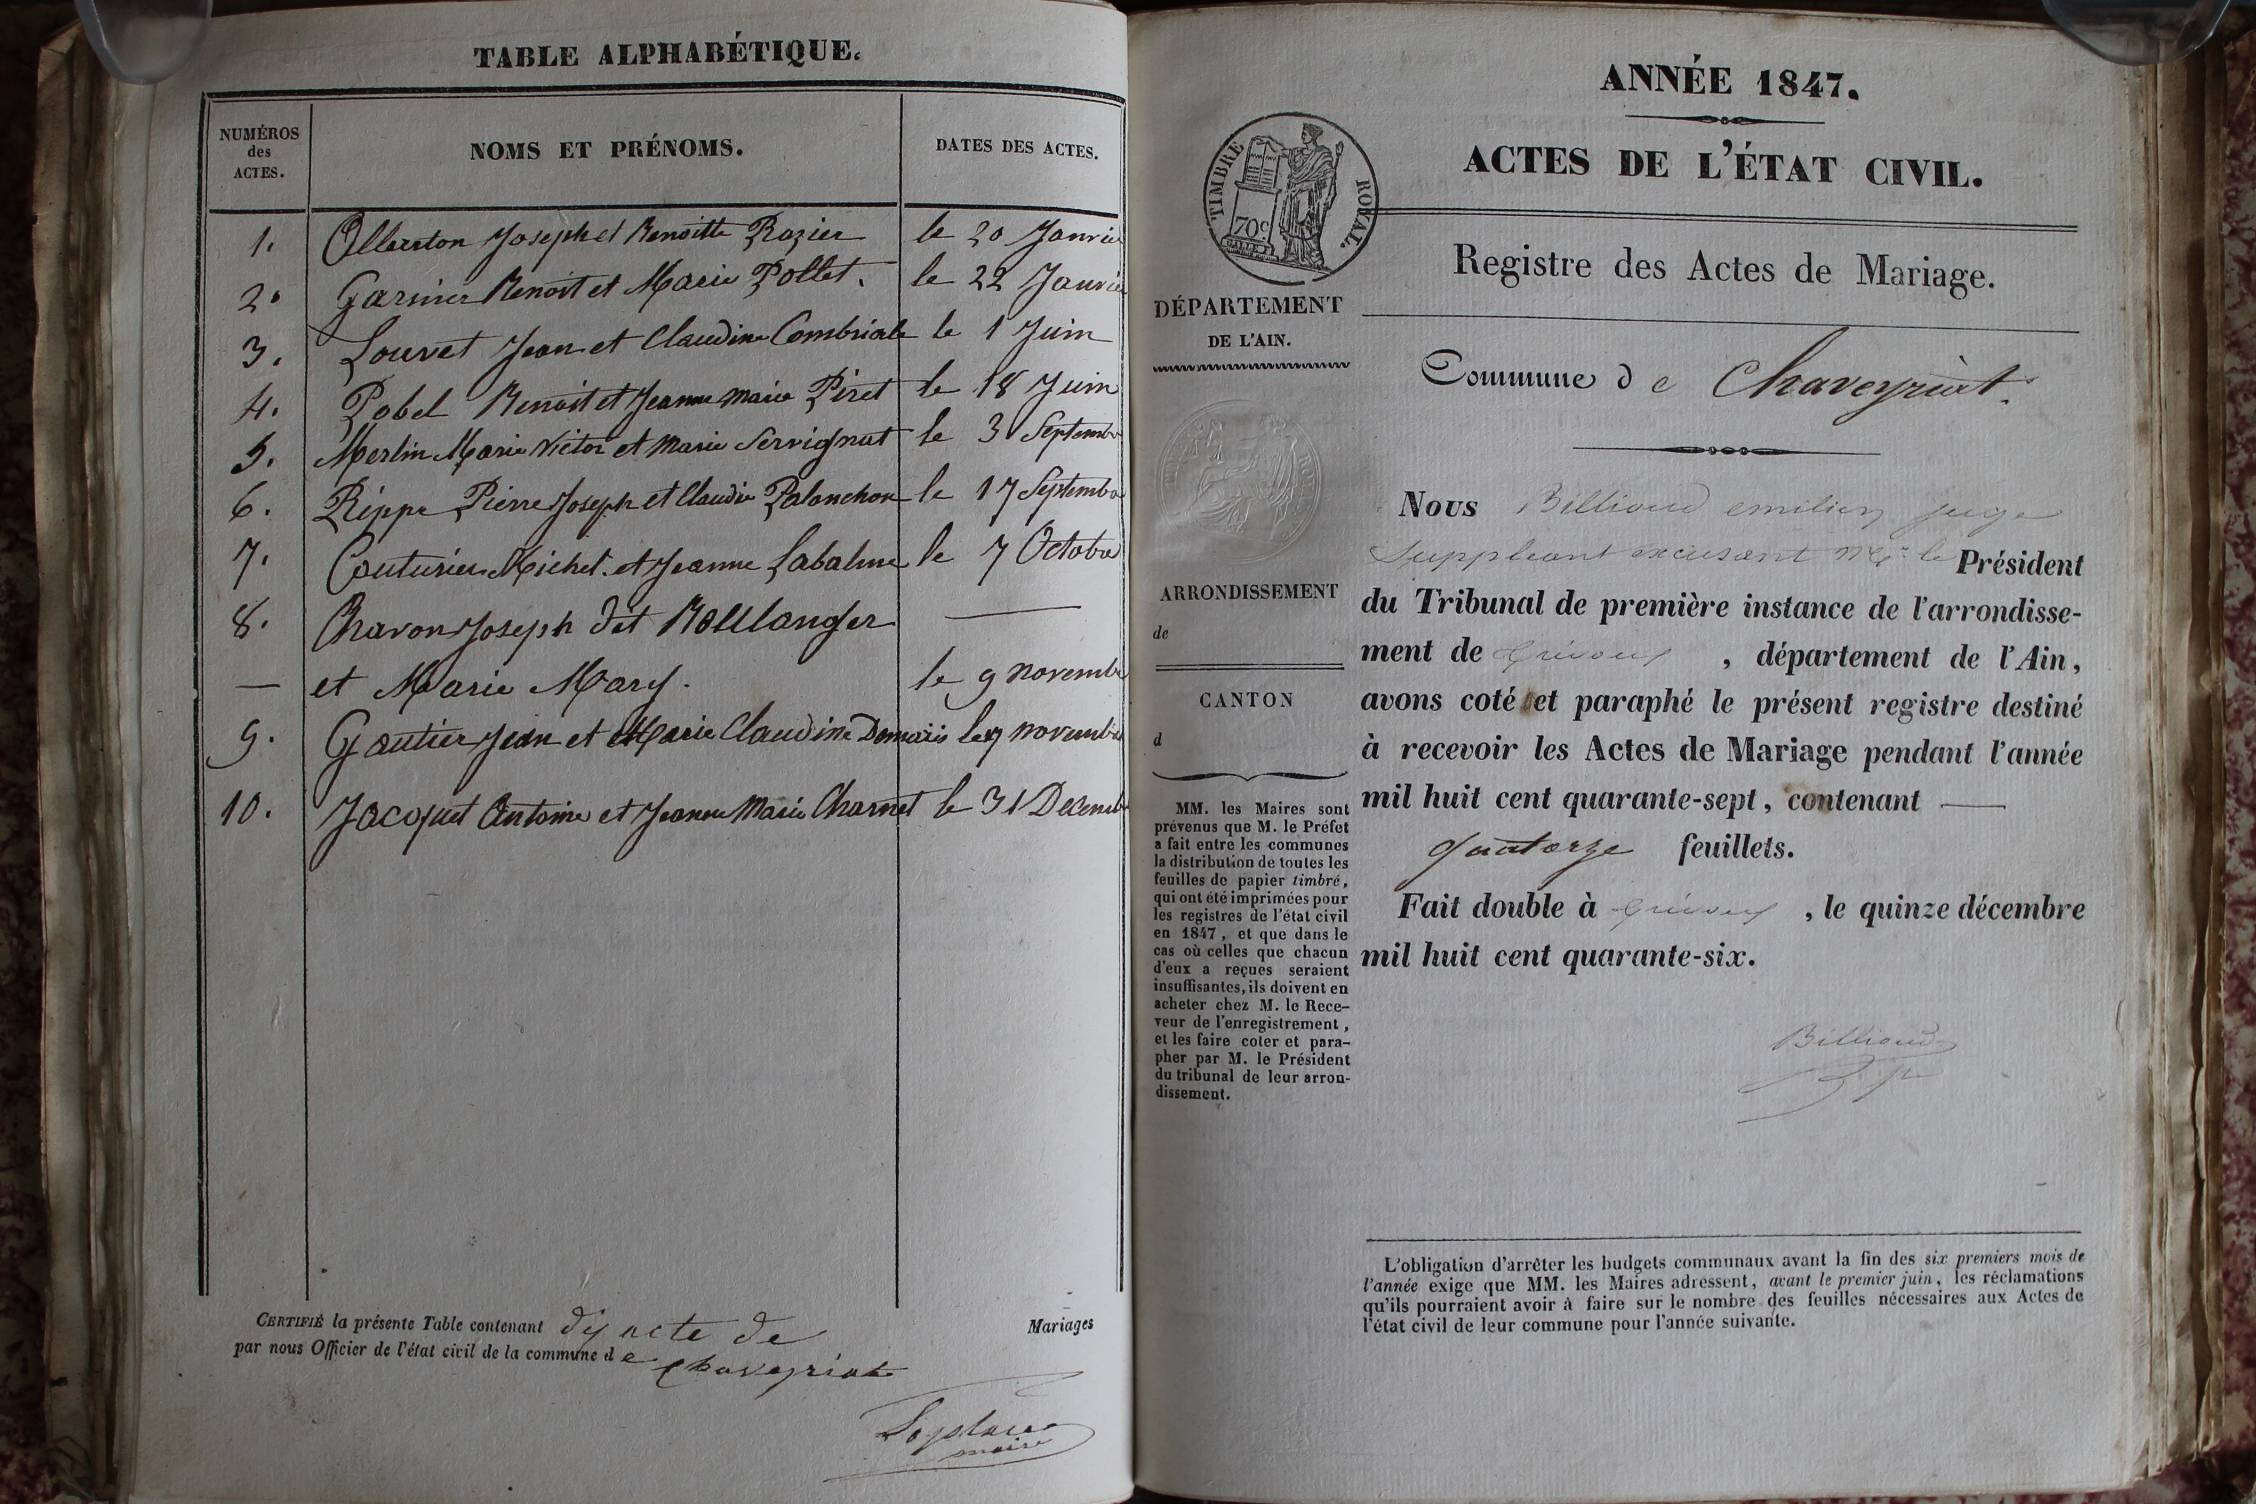 TABLE ALPHABÉTIQUE.
NUMÉROS des ACTES.
NOMS ET PRÉNOMS.
DATES DES ACTES.
1. Joseph et Benoitte Rozier le 20 Janvier
2. Garnier Benoit et Marie Pollet. le 22 Janvier
3. Louvet Jean et Claudine le 1 Juin
4. Pobel Benoit et Jeanne Marie Piret le 18 Juin
5. Merlin Marie Victor et Marie Servignat le 3 Septembre
6. Rippe Pierre Joseph et Claudie Palanchon le 17 Septembre
7. Couturier Michel et Jeanne Labalme le 7 Octobre
8. Chavon Joseph dit Boullanger —
— et Marie Mary. le 9 novembre
9. Gautier Jean et Marie Claudine le 17 novembre
10. Jacquet Antoine et Jeanne Marie Charnet le 31 Decembre
CERTIFIÉ la présente Table contenant dix acte de Mariages
par nous Officier de l'état civil de la commune de Chaveyriat
maire
ANNÉE 1847.
ACTES DE L'ÉTAT CIVIL.
TIMBRE ROYAL.
70c
Registre des Actes de Mariage.
DÉPARTEMENT
DE L'AIN.
Commune de Chaveyriat.
Nous Billioud emilien juge
Suppléant excusant Mr le Président
du Tribunal de première instance de l'arrondisse-
ment de Trévoux, département de l'Ain,
avons coté et paraphé le présent registre destiné
à recevoir les Actes de Mariage pendant l'année
mil huit cent quarante-sept, contenant —
quatorze feuillets.
Fait double à Trévoux, le quinze décembre
mil huit cent quarante-six.
Billioud
ARRONDISSEMENT
de
CANTON
d
MM. les Maires sont
prévenus que M. le Préfet
a fait entre les communes
la distribution de toutes les
feuilles de papier timbré,
qui ont été imprimées pour
les registres de l'état civil
en 1847, et que dans le
cas où celles que chacun
d'eux a reçues seraient
insuffisantes, ils doivent en
acheter chez M. le Rece-
veur de l'enregistrement,
et les faire coter et para-
pher par M. le Président
du tribunal de leur arron-
dissement.
L'obligation d'arrêter les budgets communaux avant la fin des six premiers mois de
l'année exige que MM. les Maires adressent, avant le premier juin, les réclamations
qu'ils pourraient avoir à faire sur le nombre des feuilles nécessaires aux Actes de
l'état civil de leur commune pour l'année suivante.